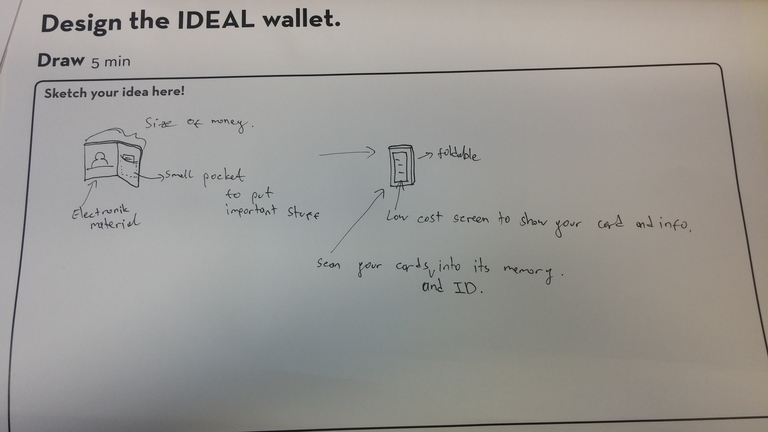 Design the IDEAL wallet.
Draw 5 min
Sketch your idea here!
Size of money.
foldable
small pocket
to put
important stuff
Electronik
material
Low cost screen to show your card and info.
Scan your cards, into its memory.
and ID.